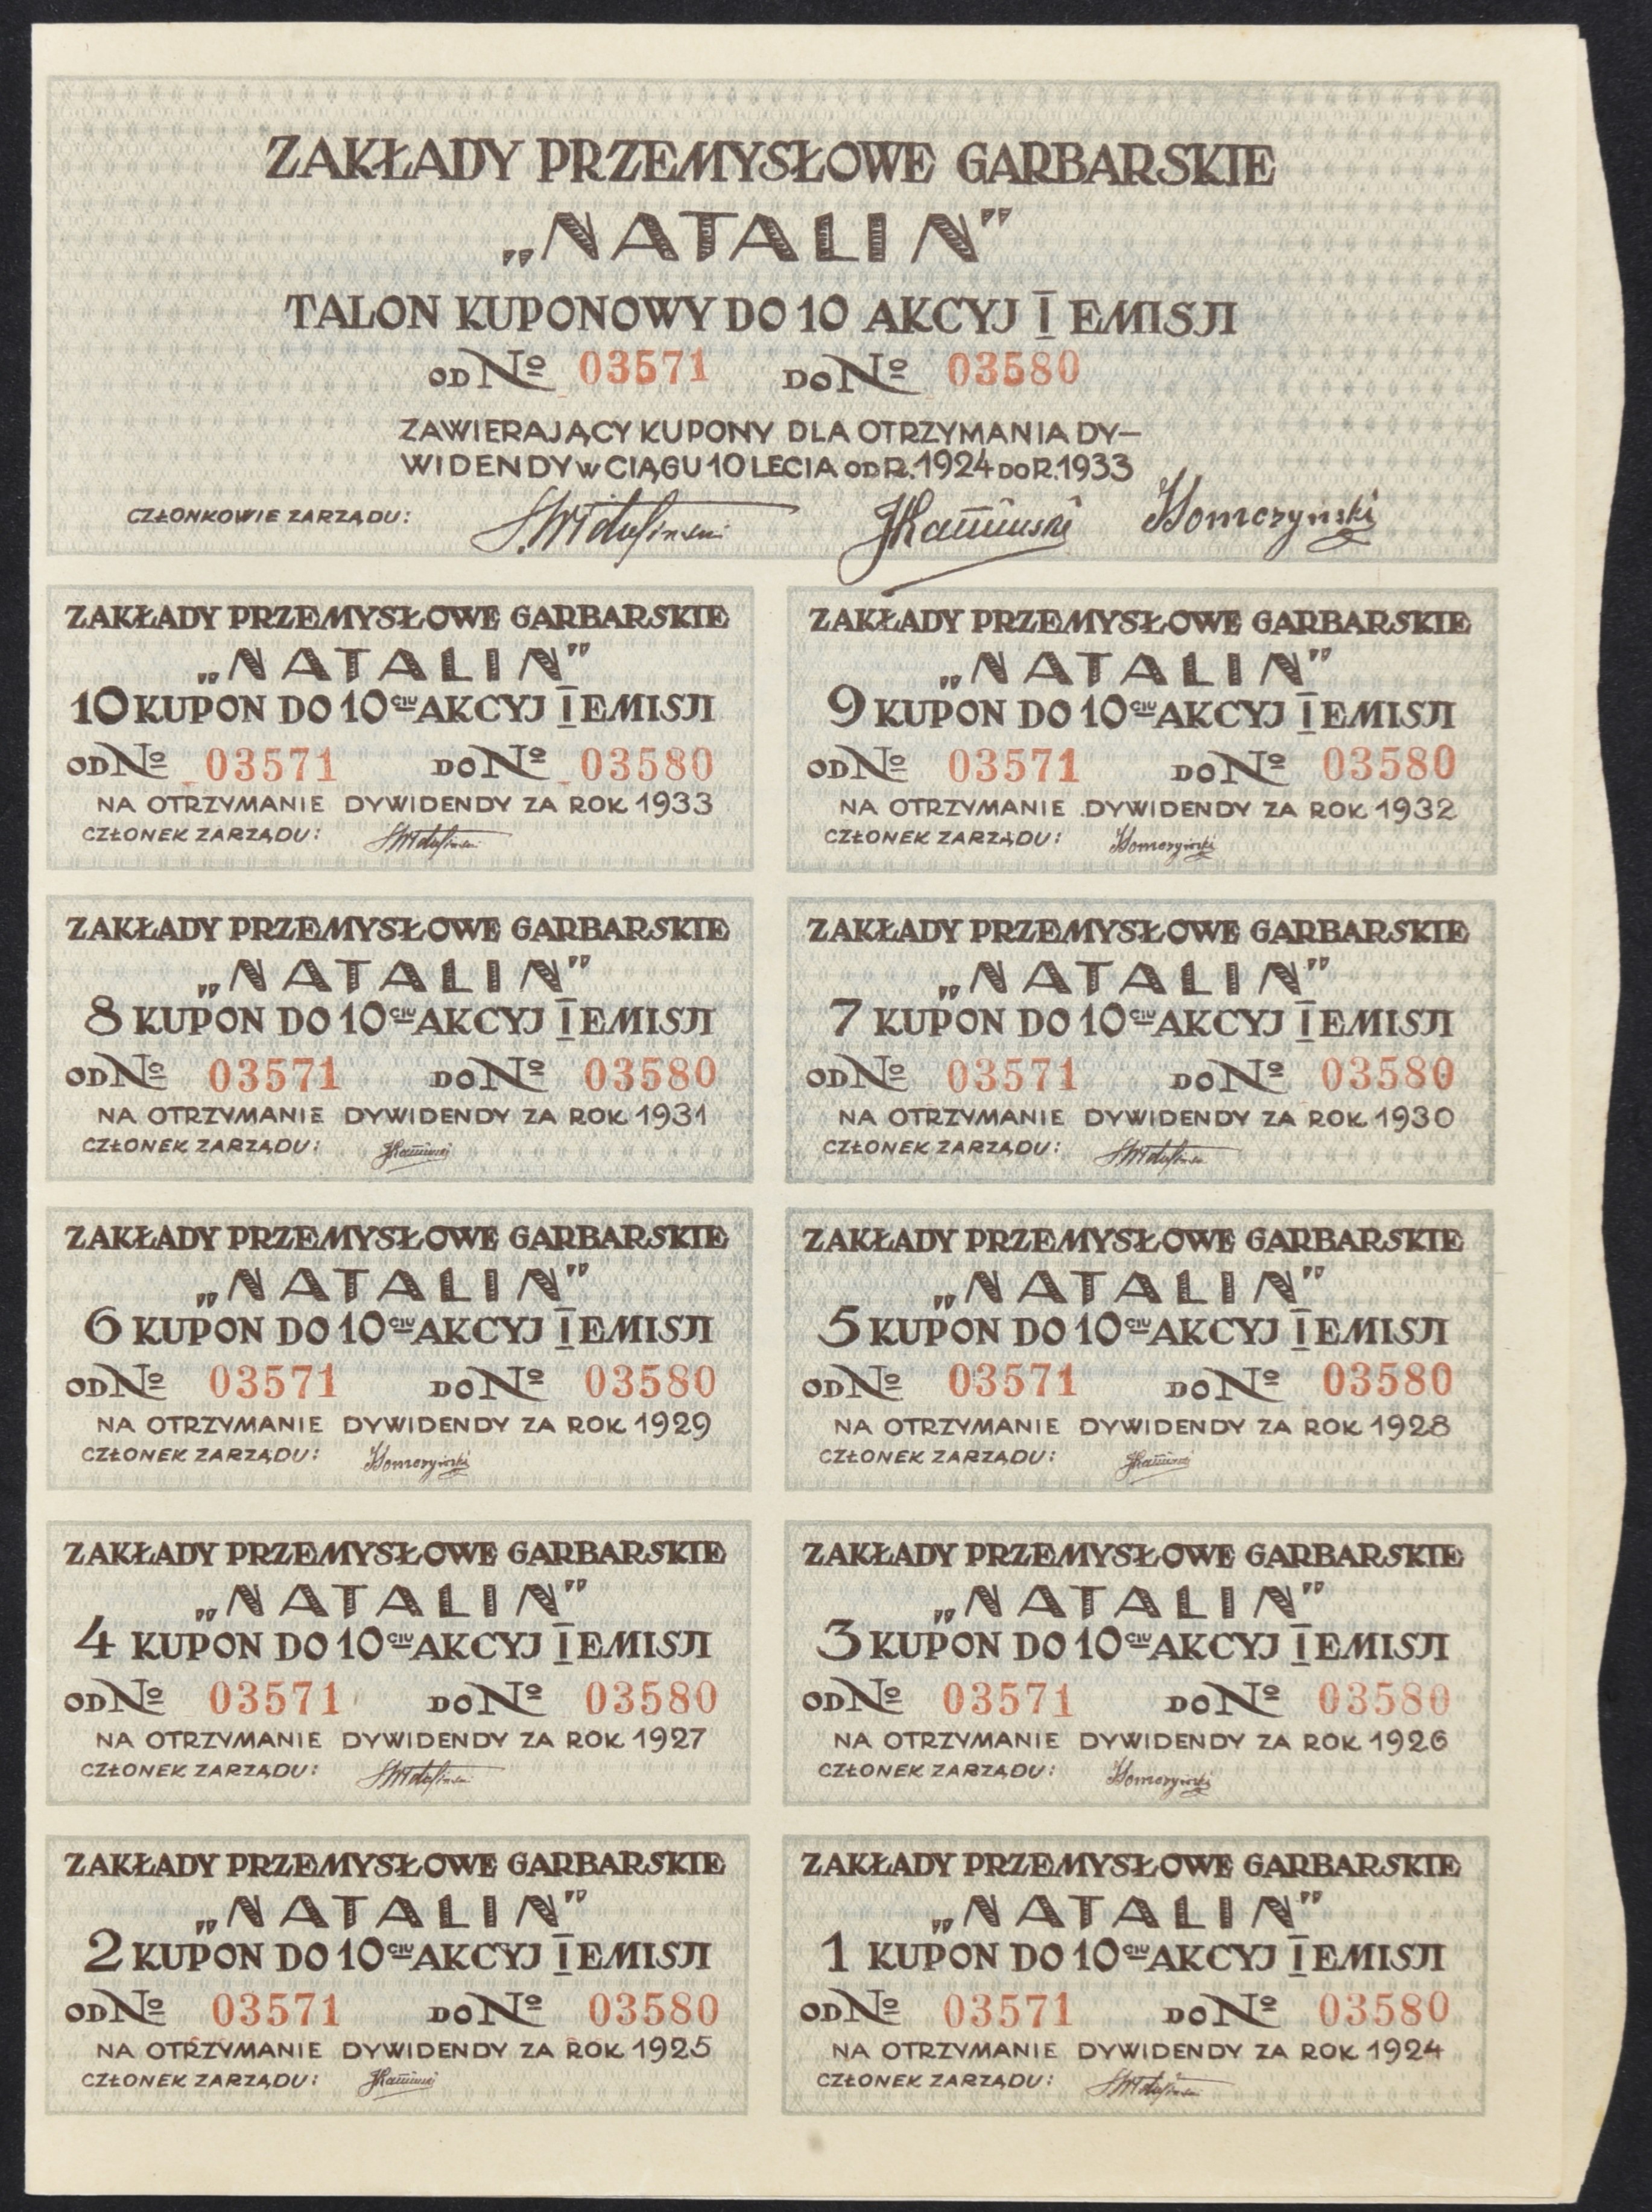 ZAKŁADY PRZEMYSŁOWE GARBARSKIE
„NATALIN”
TALON KUPONOWY DO 10 AKCYJ I EMISJI
OD No 03571 DO No 03580
ZAWIERAJĄCY KUPONY DLA OTRZYMANIA DY-
WIDENDY W CIĄGU 10 LECIA OD R. 1924 DO R. 1933
CZŁONKOWIE ZARZĄDU: JKamiński Komorzyński
ZAKŁADY PRZEMYSŁOWE GARBARSKIE
„NATALIN”
10 KUPON DO 10CIU AKCYJ I EMISJI
OD No 03571 DO No 03580
NA OTRZYMANIE DYWIDENDY ZA ROK 1933
CZŁONEK ZARZĄDU:
ZAKŁADY PRZEMYSŁOWE GARBARSKIE
„NATALIN”
9 KUPON DO 10CIU AKCYJ I EMISJI
OD No 03571 DO No 03580
NA OTRZYMANIE DYWIDENDY ZA ROK 1932
CZŁONEK ZARZĄDU: Komorzyński
ZAKŁADY PRZEMYSŁOWE GARBARSKIE
„NATALIN”
8 KUPON DO 10CIU AKCYJ I EMISJI
OD No 03571 DO No 03580
NA OTRZYMANIE DYWIDENDY ZA ROK 1931
CZŁONEK ZARZĄDU: JKamiński
ZAKŁADY PRZEMYSŁOWE GARBARSKIE
„NATALIN”
7 KUPON DO 10CIU AKCYJ I EMISJI
OD No 03571 DO No 03580
NA OTRZYMANIE DYWIDENDY ZA ROK 1930
CZŁONEK ZARZĄDU:
ZAKŁADY PRZEMYSŁOWE GARBARSKIE
„NATALIN”
6 KUPON DO 10CIU AKCYJ I EMISJI
OD No 03571 DO No 03580
NA OTRZYMANIE DYWIDENDY ZA ROK 1929
CZŁONEK ZARZĄDU: Komorzyński
ZAKŁADY PRZEMYSŁOWE GARBARSKIE
„NATALIN”
5 KUPON DO 10CIU AKCYJ I EMISJI
OD No 03571 DO No 03580
NA OTRZYMANIE DYWIDENDY ZA ROK 1928
CZŁONEK ZARZĄDU: JKamiński
ZAKŁADY PRZEMYSŁOWE GARBARSKIE
„NATALIN”
4 KUPON DO 10CIU AKCYJ I EMISJI
OD No 03571 DO No 03580
NA OTRZYMANIE DYWIDENDY ZA ROK 1927
CZŁONEK ZARZĄDU:
ZAKŁADY PRZEMYSŁOWE GARBARSKIE
„NATALIN”
3 KUPON DO 10CIU AKCYJ I EMISJI
OD No 03571 DO No 03580
NA OTRZYMANIE DYWIDENDY ZA ROK 1926
CZŁONEK ZARZĄDU: Komorzyński
ZAKŁADY PRZEMYSŁOWE GARBARSKIE
„NATALIN”
2 KUPON DO 10CIU AKCYJ I EMISJI
OD No 03571 DO No 03580
NA OTRZYMANIE DYWIDENDY ZA ROK 1925
CZŁONEK ZARZĄDU: JKamiński
ZAKŁADY PRZEMYSŁOWE GARBARSKIE
„NATALIN”
1 KUPON DO 10CIU AKCYJ I EMISJI
OD No 03571 DO No 03580
NA OTRZYMANIE DYWIDENDY ZA ROK 1924
CZŁONEK ZARZĄDU: